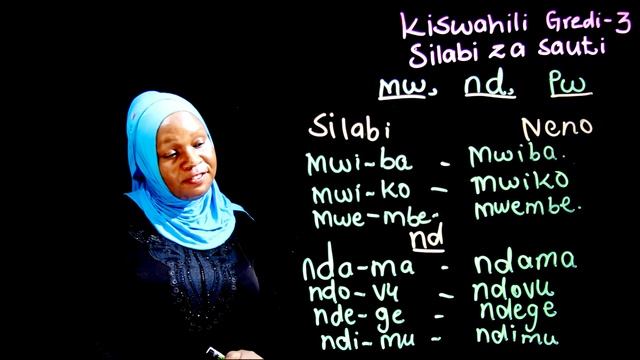 Kiswahili Gredi-3
Silabi za sauti
mw, nd, Pw
Silabi Neno
Mwi-ba - Mwiba.
mwi-ko - mwiko
mwe-mbe- mwembe.
nd
nda-ma - ndama
ndo-vu - ndovu
nde-ge - ndege
ndi-mu - ndimu